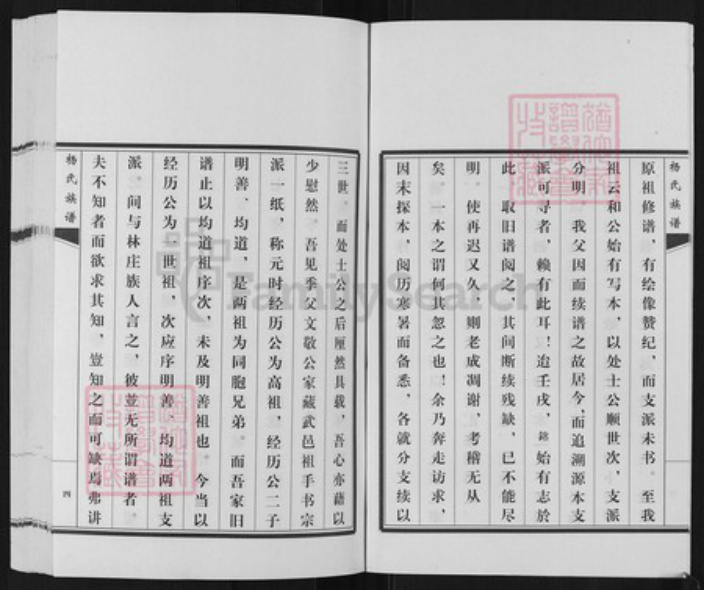 杨氏族谱
原祖修谱，有绘像赞纪，而支派未书。至我
祖云和公始有写本，以处士公顺世次，支派
分明，我父因而续谱之故居今，而追溯源本支
派可寻者，赖有此耳！迨壬戌，錦始有志於
此，取旧谱阅之，其间断续残缺，已不能尽
明。使再迟又久，则老成凋谢，考稽无从
矣。一本之谓何其忽之也！余乃奔走访求，
因末探本，阅历寒暑而备悉，各就分支续以
三世。而处士公之后厘然具载，吾心亦藉以
少慰然。吾见季父文敬公家藏武邑祖手书宗
派一纸，称元时经历公为高祖，经历公二子
明善、均道，是两祖为同胞兄弟。而吾家旧
谱止以均道祖序次，未及明善祖也。今当以
经历公为一世祖，次应序明善、均道两祖支
派。间与林庄族人言之，彼並无所谓谱者。
夫不知者而欲求其知，豈知之而可缺焉弗讲
杨氏族谱
四
FamilySearch